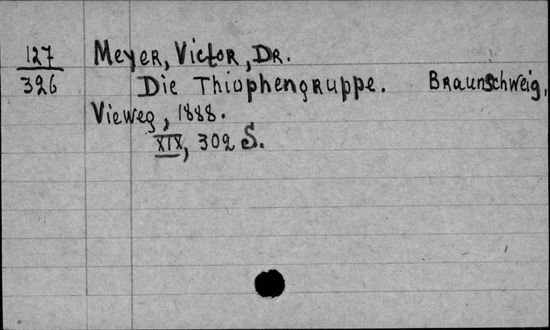 127 Meyer, Victor, Dr.
326 Die Thiophengruppe. Braunschweig,
Vieweg, 1888.
XIX, 302 S.